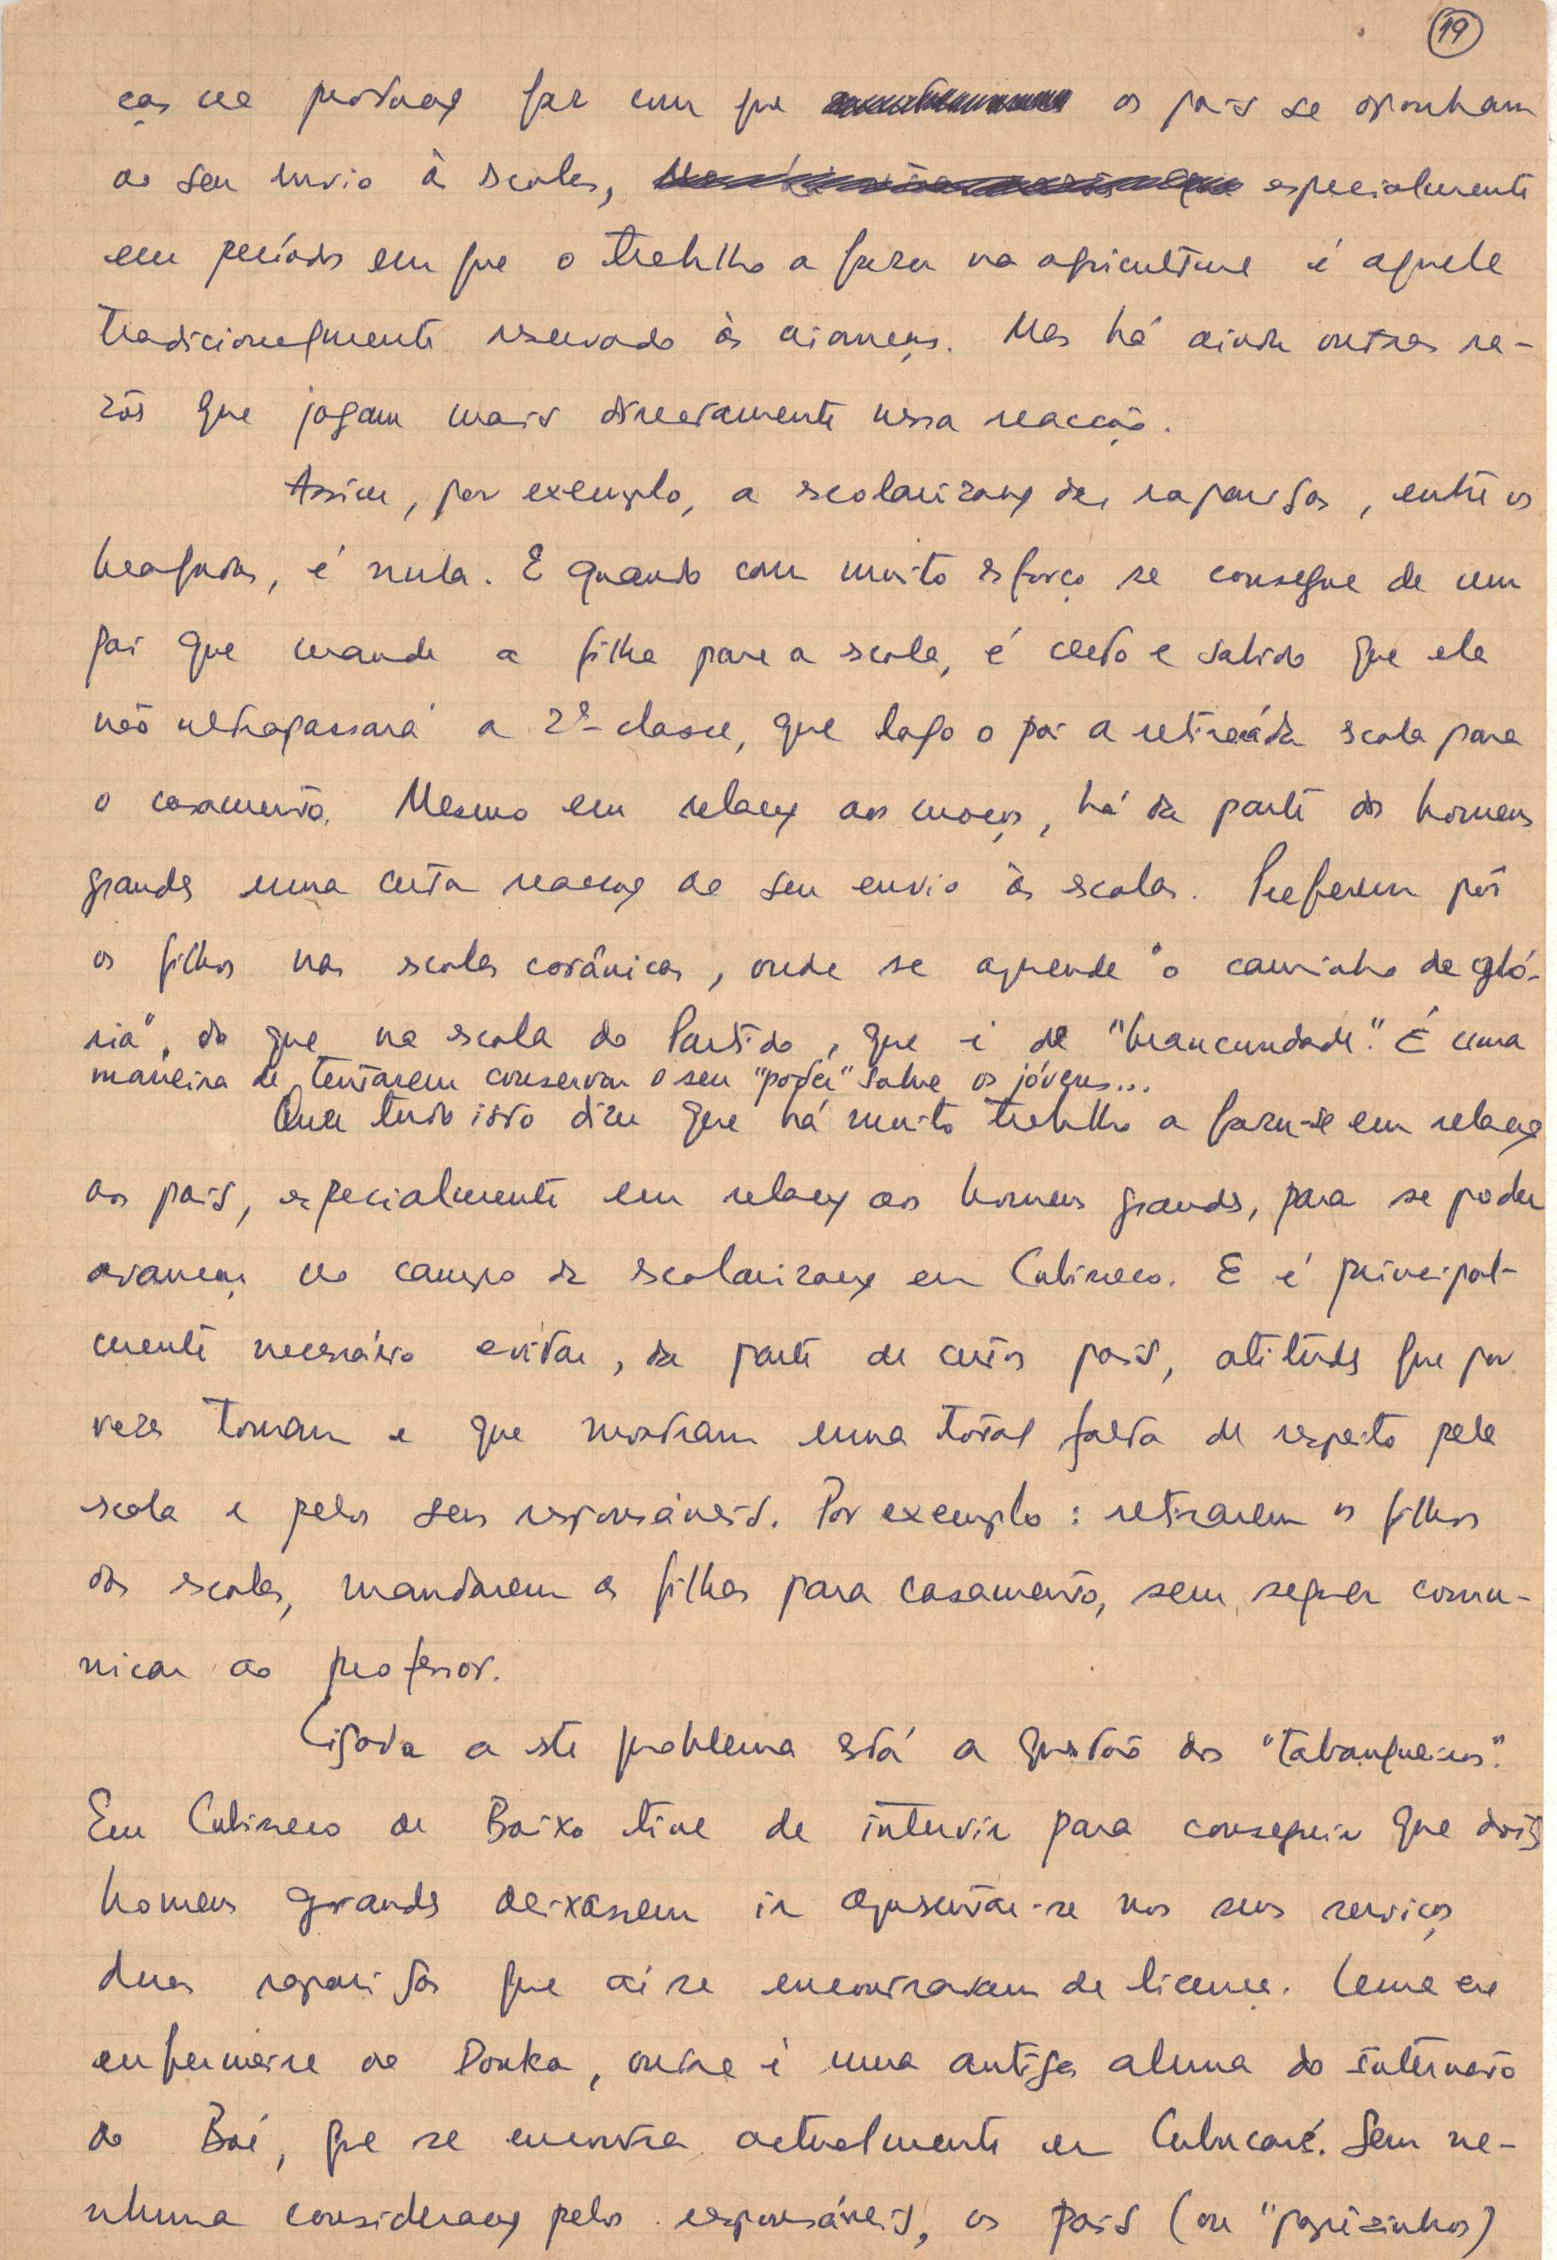 19
ças na produção faz com que os pais se oponham
ao seu envio à escola, especialmente
em período em que o trabalho a fazer na agricultura é aquele
tradicionalmente reservado às crianças. Mas há ainda outras ra-
zões que jogam mais directamente nessa reacção.
Assim, por exemplo, a escolarização das raparigas, entre os
beafadas, é nula. E quando com muito esforço se consegue de um
pai que mande a filha para a escola, é certo e sabido que ela
não ultrapassará a 2ª classe, que logo o pai a retirará da escola para
o casamento. Mesmo em relação aos moços, há da parte dos homens
grandes uma certa reacção ao seu envio às escolas. Preferem pôr
os filhos nas escolas corânicas, onde se aprende "o caminho da gló-
ria", do que na escola do Partido, que é de "brancundade". É uma
maneira de tentarem conservar o seu "poder" sobre os jóvens...
Quer tudo isto dizer que há muito trabalho a fazer-se em relação
aos pais, especialmente em relação aos homens grandes, para se poder
avançar no campo da escolarização em Cubisseco. E é principal-
mente necessário evitar, da parte de certos pais, atitudes que por
vezes tomam e que mostram uma total falta de respeito pela
escola e pelos seus responsáveis. Por exemplo: retirarem os filhos
das escolas, mandarem as filhas para casamento, sem sequer comu-
nicar ao professor.
Ligada a este problema está a questão dos "tabanqueiros".
Em Cubisseco de Baixo tive de intervir para conseguir que dois
homens grandes deixassem ir apresentar-se nos seus serviços
duas raparigas que aí se encontravam de licença. Uma era
enfermeira no Donka, outra é uma antiga aluna do Internato
do Boé, que se encontra actualmente em Cubucaré. Sem ne-
nhuma consideração pelos responsáveis, os pais (ou "papèzinhos)